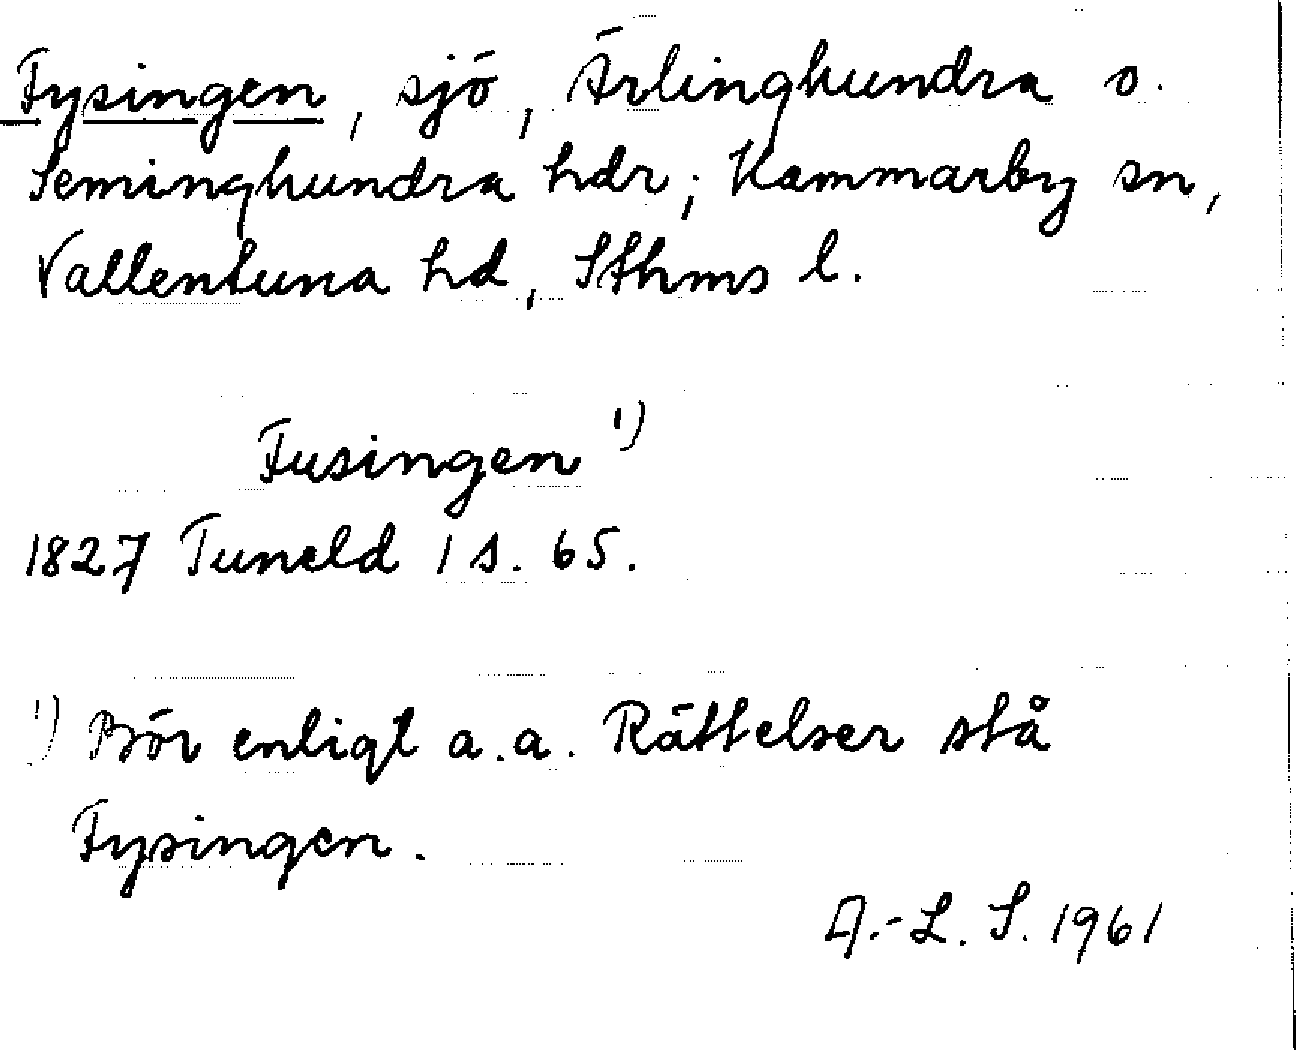 Fysingen, sjö, Ärlinghundra o.
Seminghundra hdr; Hammarby sn,
Vallentuna hd, Sthms l.
Fusingen ¹)
1827 Tuneld 1 s. 65.
¹) Bör enligt a.a. Rättelser stå
Fysingen.
A.-L. S. 1961